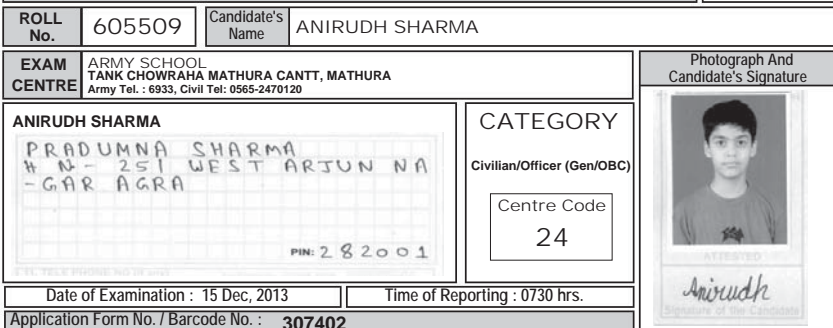 ROLL No. 605509 Candidate's Name ANIRUDH SHARMA
EXAM CENTRE
ARMY SCHOOL
TANK CHOWRAHA MATHURA CANTT, MATHURA
Army Tel. : 6933, Civil Tel: 0565-2470120
Photograph And
Candidate's Signature
ANIRUDH SHARMA
PRADUMNA SHARMA
H N - 251 WEST ARJUN NA
-GAR AGRA
PIN: 282001
CATEGORY
Civilian/Officer (Gen/OBC)
Centre Code
24
ATTESTED
Anirudh
Signature of the Candidate
Date of Examination : 15 Dec, 2013
Time of Reporting : 0730 hrs.
Application Form No. / Barcode No. : 307402